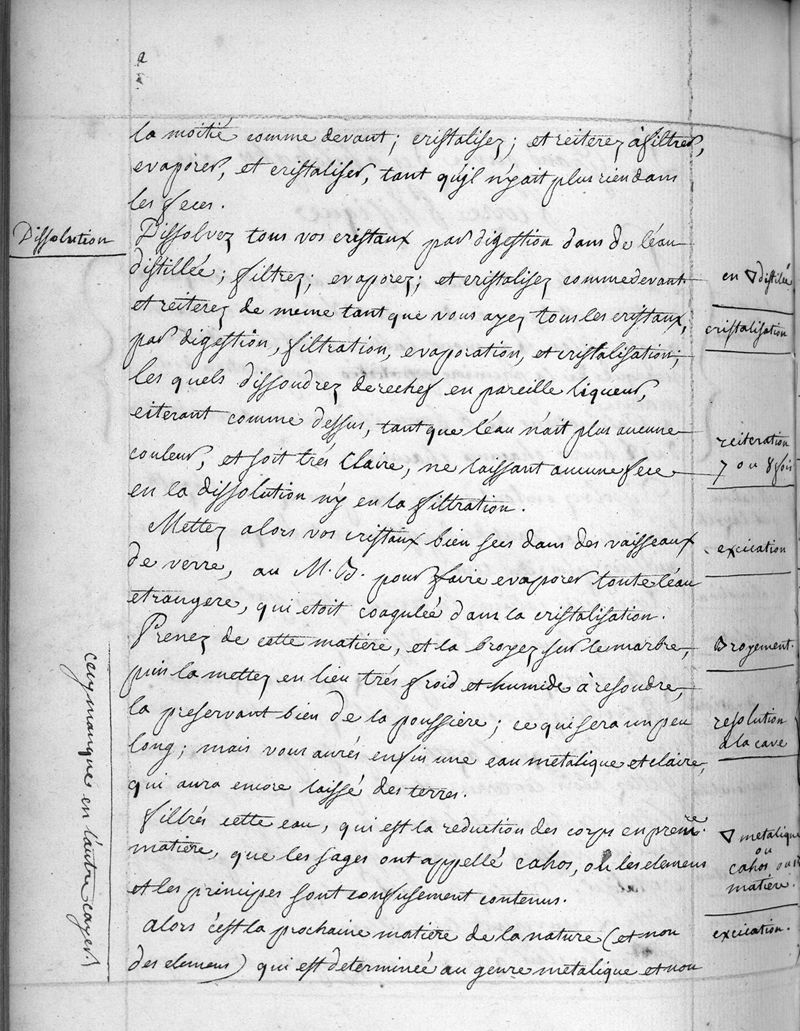 2
la moitié comme devant; cristalisez; et reiterez à filtrer,
evaporer, et cristaliser, tant qu'jl n'y ait plus rien dans
les feces.
Dissolution
Dissolvez tous vos cristaux par digestion dans de l'eau
distillée; filtrez; evaporez; et cristalisez comme devant
en 🜄 distilée
et reiterez de meme tant que vous ayez tous les cristaux,
cristalisation
par digestion, filtration, evaporation, et cristalisation;
les quels dissoudrez derechef en pareille liqueur,
eiterant comme dessus, tant que l'eau n'ait plus aucune
reiteration
couleur, et soit trés claire, ne laissant aucune fece
7 ou 8 fois
en la dissolution n'y en la filtration.
Mettez alors vos cristaux bien secs dans des vaisseaux
exciication
de verre, au M. B. pour faire evaporer toute l'eau
etrangere, qui etoit coagulée dans la cristalisation.
Prenez de cette matiere, et la broyez sur le marbre,
Broyement.
puis la mettez en lieu trés froid et humide à resoudre,
la preservant bien de la poussiere; ce qui sera un peu
resolution
long; mais vous aurés enfin une eau metalique et claire,
a la cave
qui aura encore laissé des terres.
filtrés cette eau, qui est la reduction des corps en prem.re
🜄 metalique
ou
matiere, que les sages ont appellé cahos, ou les elemens
cahos ou
matiere.
et les principes sont confusement contenus.
alors c'est la prochaine matiere de la nature (et non
exciication.
des elemens) qui est determinée au genre metalique et non
cecy manque en l'autre cayer